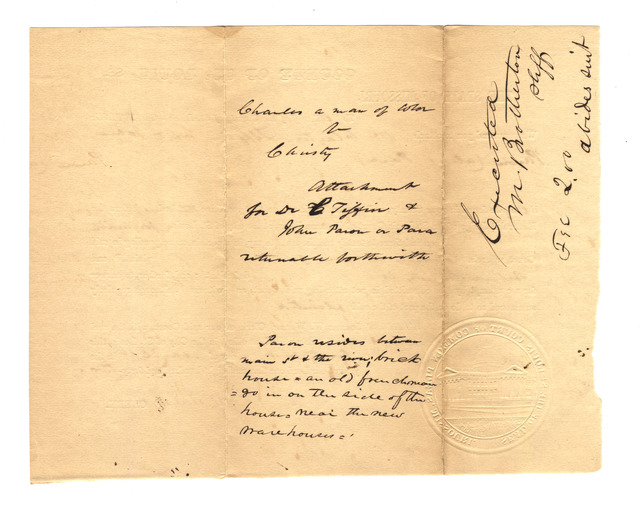 Charles a man of Color
v
Christy
Attachment
for Dr C Tiffin &
John Paron or Para
returnable forthwith
Paron resides between
main st & the river; brick
house = an old frenchman
= do in on the side of the
house = near the new
warehouses =
Executed
M. Brotherton
shff
Fee 2.00
abides suit